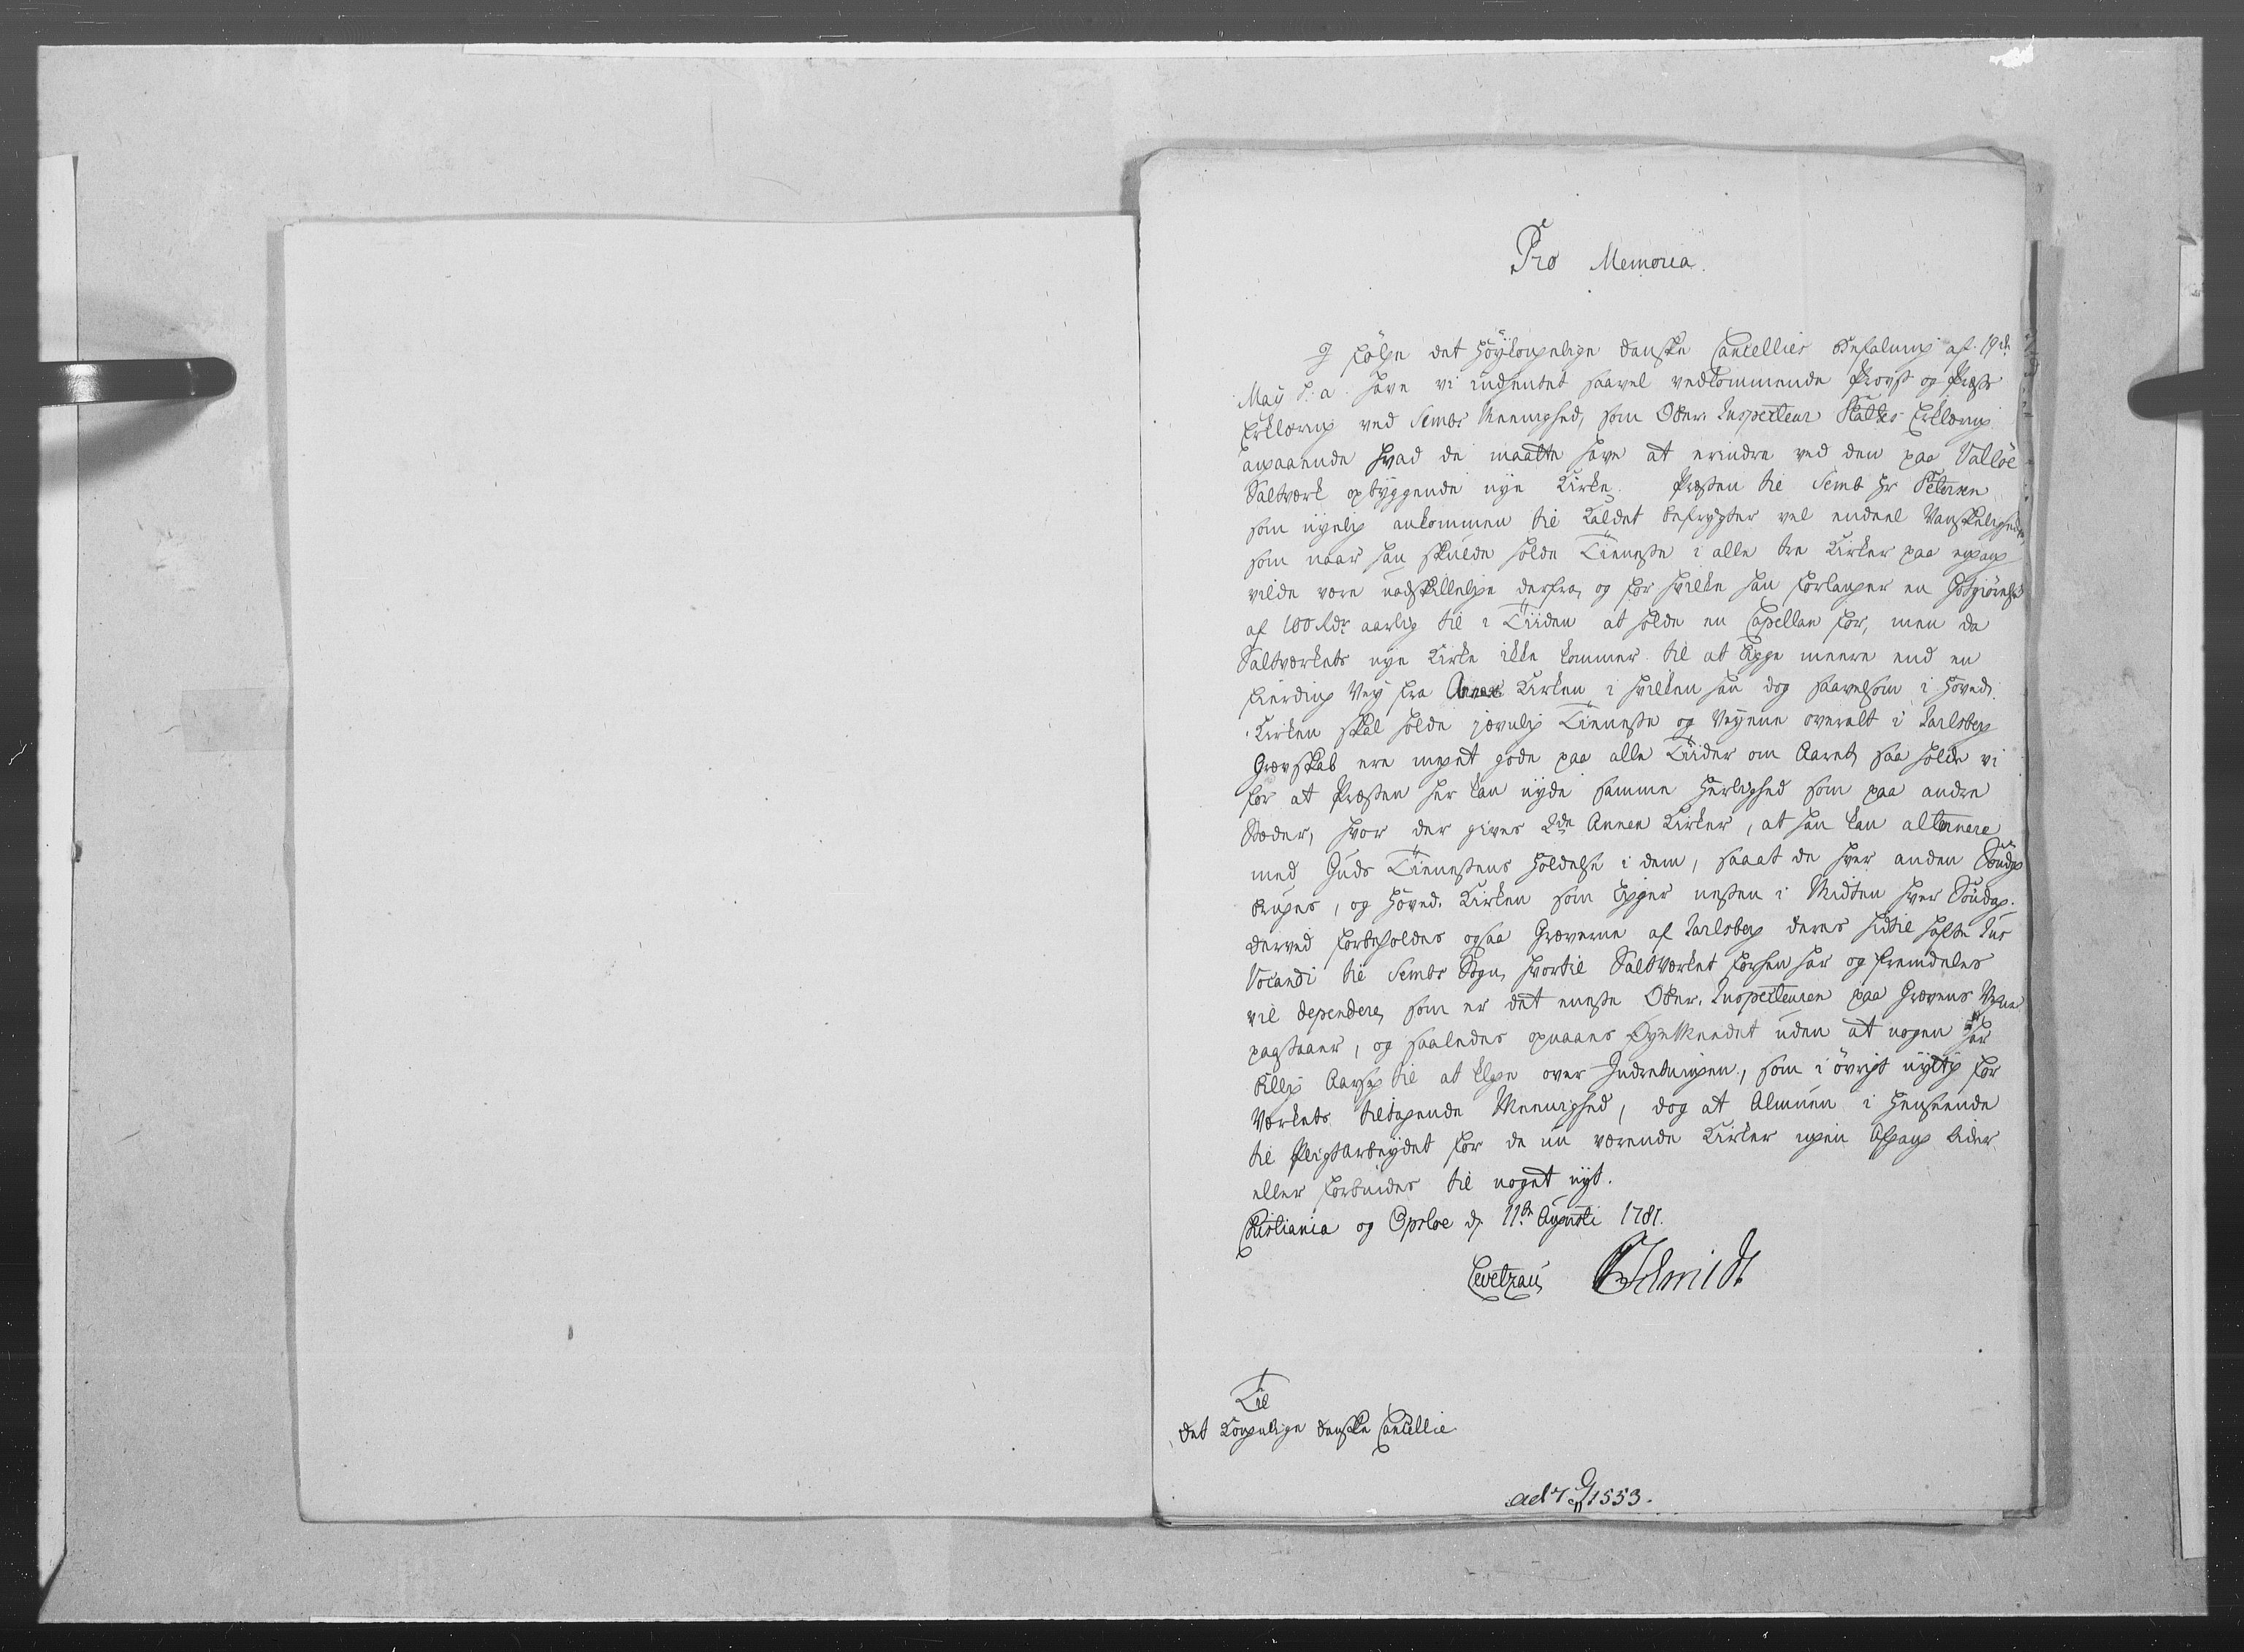 Pro Memoria.
I følge det Høykongelige danske Cancellies Befaling af 19de
Maÿ h: a: have vi indhentet saavel vedkommende Provst og Præsts
Erklæring ved Sembs Meenighed, som Ober-Inspecteur Erklæring
angaaende hvad de maatte have at erindre ved den paa Valløe
Saltværk opbyggende nye Kirke. Præsten til Semb Hr Petersen
som nylig ankommen til Kaldet befrygter vel endeel Vanskeligheder
som naar han skulde holde Tieneste i alle tre Kirker paa engang
vilde være uadskillelige derfra, og for hvilke han forlanger en Godgiørelse
af 100 Rdr aarlig til i Tiiden at holde en Capellan for, men da
Saltværkets nye Kirke ikke kommer til at ligge meere end en
fierding Vey fra Annex Kirken i hvilken han dog saavelsom i Hoved-
Kirken skal holde jævnlig Tieneste og Veyene overalt i Jarlsberg
Grevskab ere meget gode paa alle Tiider om Aaret, saa holde vi
for at Præsten her kan nyde samme Herlighed som paa andre
Stæder, hvor der gives 2de Annex Kirker, at han kan alternere
med Guds Tienestens Holdelse i dem, saaat de hver anden Søndag
bruges, og Hoved-Kirken som ligger næsten i Midten hver Søndag.
derved forbeholdes ogsaa Greverne af Jarlsberg deres hidtil hafte Jus
Vocandi til Sembs Sogn, hvortil Saltværket forhen har og fremdeles
vil dependere, som er det eneste Ober-Inspecteuren paa Grevens Vegne
paastaaer, og saaledes opnaaes Øyemeedet uden at nogen har
billig Aarsag til at klage over Indretningen, som i øvrigt nyttig for
Værkets tiltagende Meenighed, dog at Almuen i Henseende
til Pligtarbeydet for de nu værende Kirker ingen Afgang lider
eller forbindes til noget nyt.
Christiania og Opsloe d. 11te Augusti 1781.
Levetzau Schmidt
Til
det Kongelige danske Cancellie
1553.